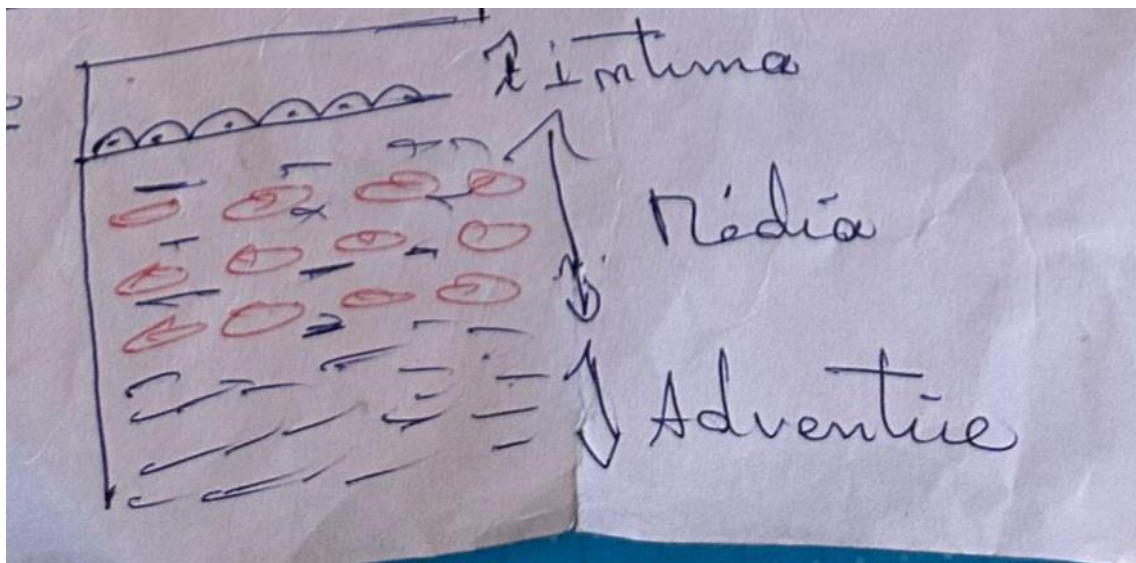 Intima
Média
Adventice